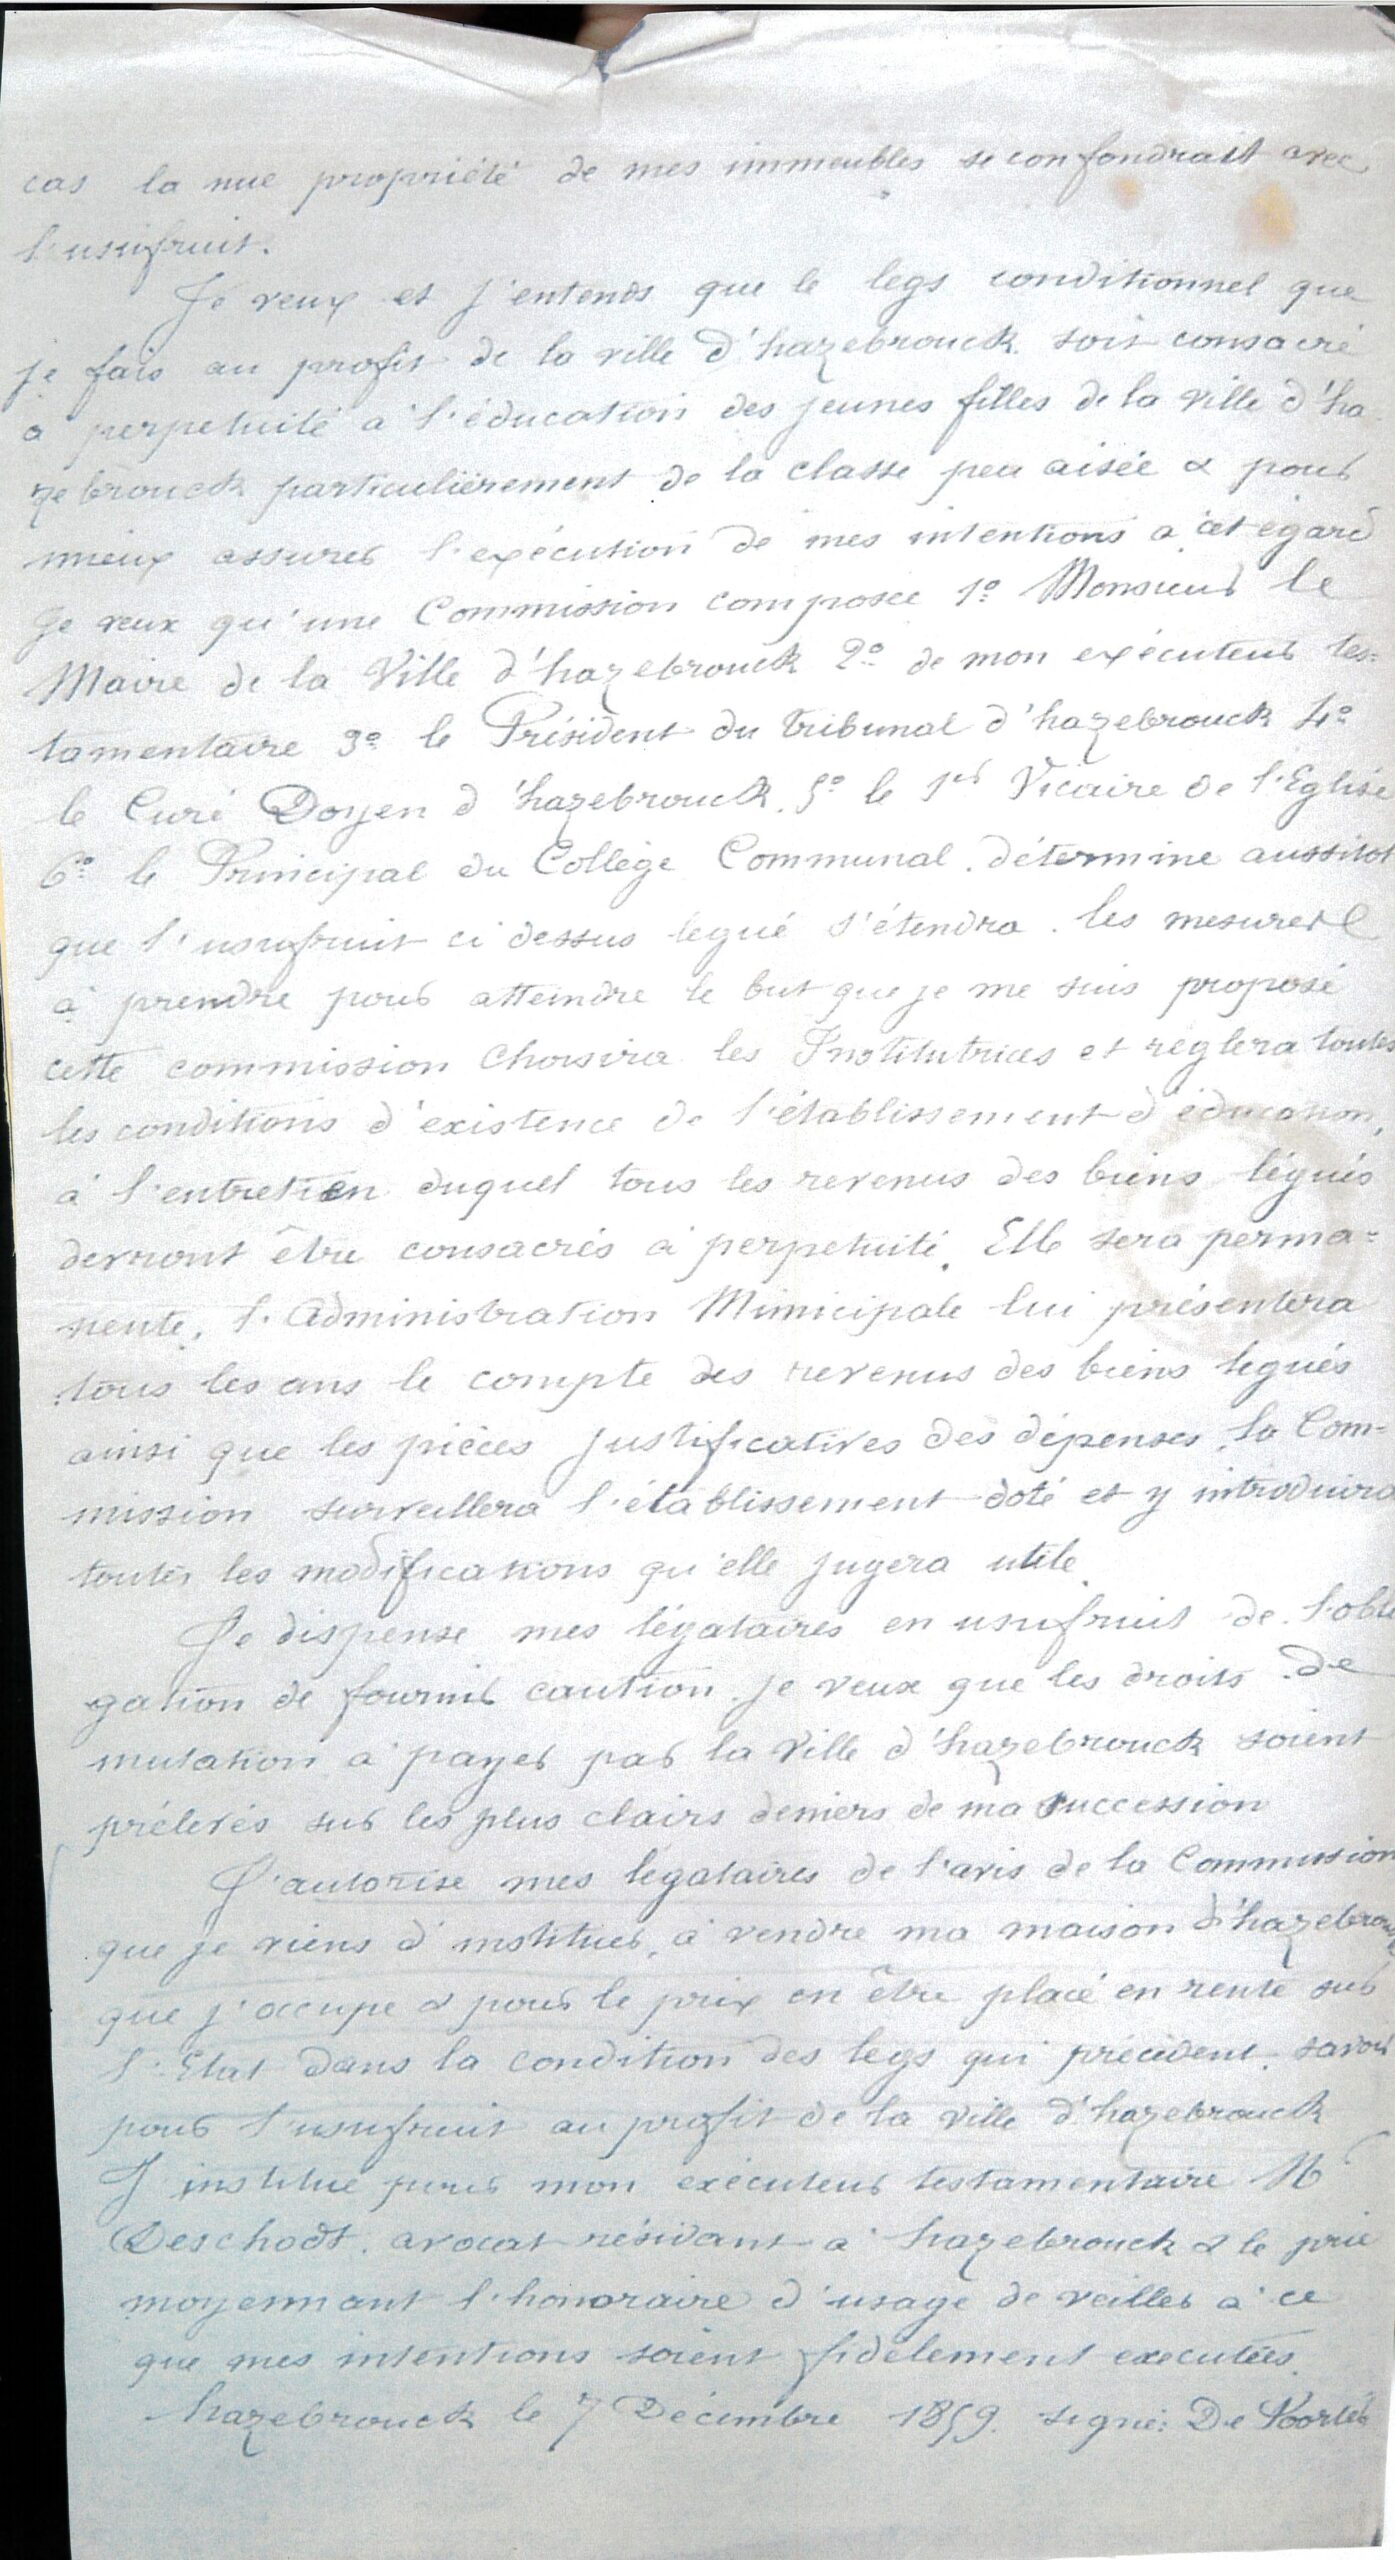 cas la nue propriété de mes immeubles se confondrait avec
l'usufruit.
Je veux et j'entends que le legs conditionnel que
je fais au profit de la ville d'hazebrouck soit consacré
a perpetuité a l'éducation des jeunes filles de la ville d'ha
zebrouck particulièrement de la classe peu aisée & pour
mieux assurer l'exécution de mes intentions a cet égard
Je veux qu'une Commission composée 1º Monsieur le
Maire de la Ville d'hazebrouck 2º de mon exécuteur tes=
tamentaire 3º le Président du tribunal d'hazebrouck 4º
le Curé Doyen d'hazebrouck 5º le 1er Vicaire de l'Eglise
6º le Principal du Collège Communal. détermine aussitot
que l'usufruit ci dessus legué s'étendra. les mesures
à prendre pour atteindre le but que je me suis proposé
cette commission Choisira les Institutrices et reglera toutes
les conditions d'existence de l'établissement d'éducation,
à l'entretien duquel tous les revenus des biens légués
devront être consacrés à perpetuité. Elle sera perma=
nente, l'Administration Municipale lui présentera
tous les ans le compte des revenus des biens legués
ainsi que les pièces justificatives des dépenses, la Com-
mission surveillera l'établissement doté et y introduira
toutes les modifications qu'elle jugera utile.
Je dispense mes légataires en usufruit de l'obli
gation de fournir caution. je veux que les droits de
mutation à payer par la Ville d'hazebrouck soient
prélevés sur les plus clairs deniers de ma succession
J'autorise mes légataires de l'avis de la Commission
que je viens d'instituer, à vendre ma maison d'hazebrouck
que j'occupe & pour le prix en être placé en rente sur
l'Etat dans la condition des legs qui précèdent. savoir
pour l'usufruit au profit de la ville d'hazebrouck
J'institue pour mon exécuteur testamentaire Mr
Deschodt. avocat résidant à hazebrouck & le prie
moyennant l'honoraire d'usage de veiller à ce
que mes intentions soient fidèlement executées.
hazebrouck le 7 Décembre 1859. signé: De Voorter